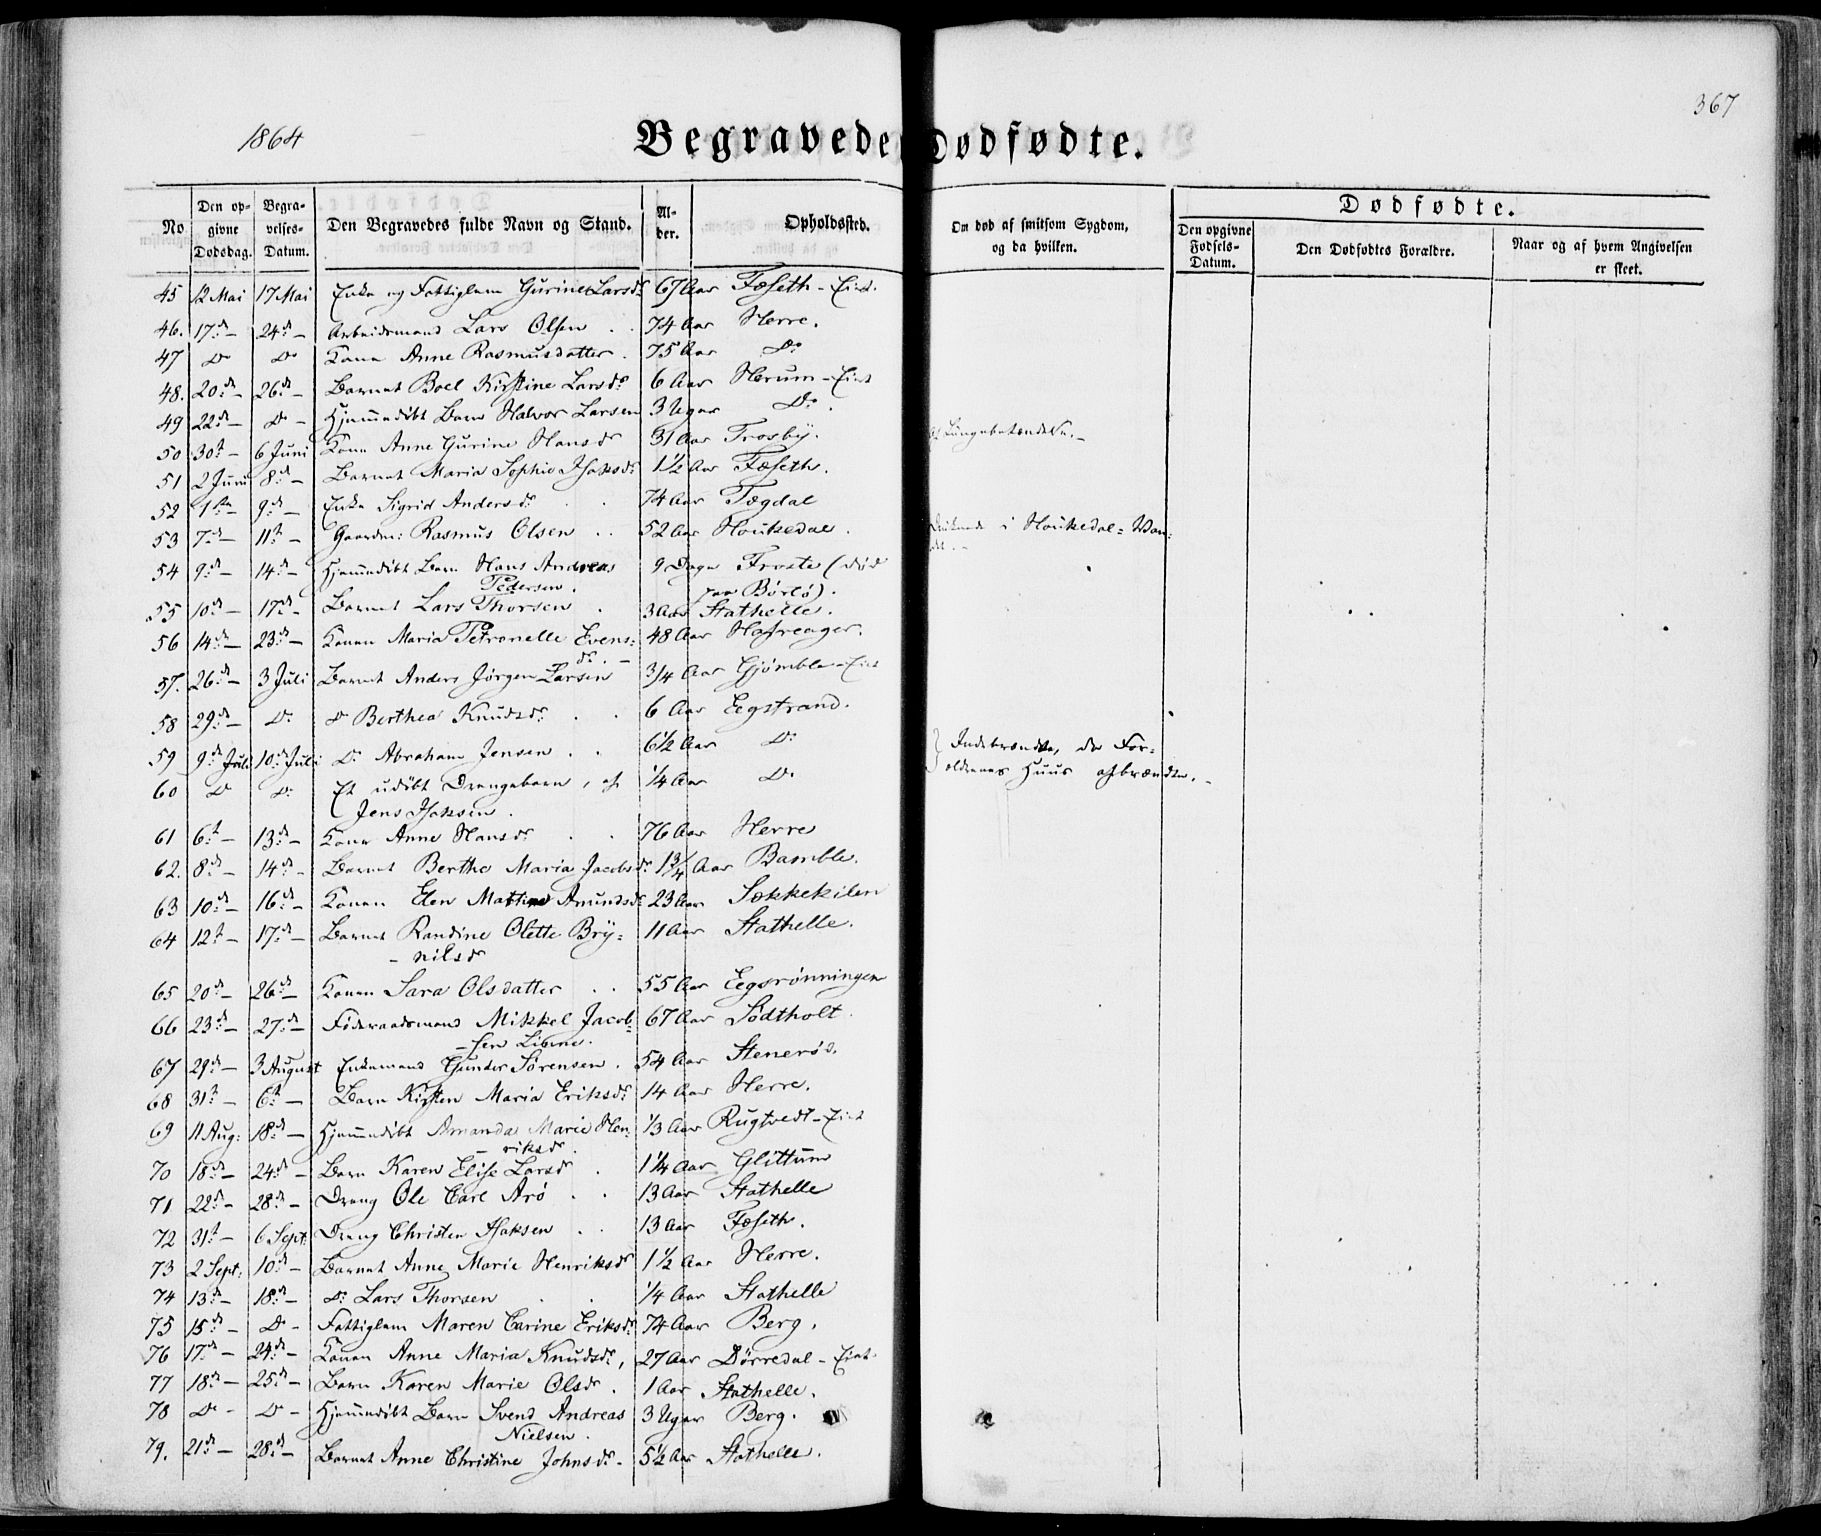 367
1864
Begravede. Dødfødte.
No. Den opgivne Dødsdag. Begravelses-Datum. Den Begravedes fulde Navn og Stand. Alder. Opholdssted. Om død af smitsom Sygdom, og da hvilken. Dødfødte.
Den opgivne Fødsels-Datum. Den Dødfødtes Forældre. Naar og af hvem Angivelsen er skeet.
45 12 Mai 17 Mai Enke og Fattiglem Gurine Larsdr 67 Aar Føseth-Eiet.
46. 17de – 24de – Arbeidsmand Lars Olsen . . 74 Aar Herre.
47 Do Do Kone Anne Rasmusdatter . 75 Aar Do
48. 20de – 26de – Barnet Boel Kirstine Larsdr 6 Aar Herum-Eiet
49 22de – Do – Hjemmedøbt Barn Halvor Larsen 3 Uger Do.
50 30te – 6 Juni Kone Anne Gurine Hansdr 31 Aar Trosby. Af Lungebetændelse. –
51 2 Juni 8de – Barnet Maria Sophie Isaksdr 1½ Aar Føseth.
52 1ste – 9de – Enke Sigrid Andersdr . . 74 Aar Tegdal
53 7de – 11te – Gaardm: Rasmus Olsen . . 52 Aar Houkedal . Druknede i Houkedal-Van-
det. –
54 9de – 14de – Hjemmedøbt Barn Hans Andreas 9 Dage Froste (død
Pedersen. paa Børlø).
55 10de – 17de – Barnet Lars Thorsen . 3 Aar Stathelle.
56 14de – 23de – Konen Maria Petronelle Evens- 48 Aar Hafreager.
dr. –
57. 26de – 3 Juli Barnet Anders Jørgen Larsen 3/4 Aar Gjømble-Eiet
58 29de – Do Do Berthea Knudsdr . . 6 Aar Eegstrand.
59 9de Juli 10de Juli Do Abraham Jensen . . 6½ Aar Do } Indebrændte, da For-
60 Do Do Et udøbt Drengebarn, af ¼ Aar Do ældrenes Huus afbrændte. –
(Jens Isaksen .
61 6te – 13de – Kone Anne Hansdr . . 76 Aar Herre
62. 8de – 14de – Barnet Berthe Maria Jacobsdr 1¾ Aar Bamble.
63 10de – 16de – Konen Elen Mathea Amundsdr 23 Aar Søkkekilen
64 12te – 17de – Barnet Randine Olette Bry- 11 Aar Stathelle.
– nilsdr
65 20de – 26de – Konen Sara Olsdatter . . 55 Aar Eegsrønningen
66 23de – 27de – Føderaadsmand Mikkel Jacob- 67 Aar Sødtholt.
– sen
67 29de – 3 August Enkemand Gunder Sørensen . 54 Aar Stenerød.
68 31te – 6te – Barn Kirsten Maria Eriksdr 14 Aar Herre.
69 11 Aug: 18de – Hjemmedøbt Amanda Marie Hen- 1/3 Aar Rugtvedt-Eiet
– riksdr .
70 18de – 24de – Barn Karen Elise Larsdr . 1¼ Aar Glittum
71 22de – 28de – Dreng Ole Carl Arø . . 13 Aar Stathelle
72 31te – 6 Sept: Dreng Christen Isaksen . . 13 Aar Føseth.
73 2 Sept: 10de – Barnet Anne Marie Henriksdr 1½ Aar Herre.
74 13de – 18de – Do Lars Thorsen . . ¼ Aar Stathelle
75 15de – Do – Fattiglem Maren Carine Eriksdr 74 Aar Berg.
76 17de – 24de – Konen Anne Maria Knudsdr, 27 Aar Dørredal-Eiet.
77 18de – 25de – Barn Karen Marie Olsdr . 1 Aar Stathelle.
78 Do – Do – Hjemmedøbt Barn Svend Andreas 3 Uger Berg.
Nielsen.
79. 21de – 28de – Barnet Anne Christine Johnsdr – 5½ Aar Stathelle.